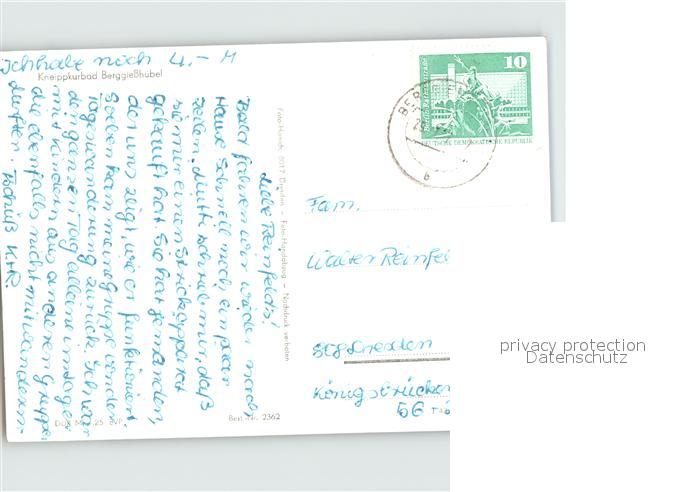 Ich habe noch 4.- M
Kneippkurbad Berggießhübel
Liebe Reinfelds!
Bald fahren wir wieder nach
Hause. Schnell noch ein paar
Zeilen. Mutti schrieb mir, daß
sie mir einen Strickapparat
gekauft hat. Sie hat jemanden,
der uns zeigt wie er funktioniert.
Soeben kam meine Gruppe von der
Tageswanderung zurück. Ich war
den ganzen Tag alleine im Lager
mit Kindern aus anderen Gruppen
die ebenfalls nicht mitwandern
durften. Tschüß
Foto-Handabzug - Nachdruck verboten
Best.-Nr. 2362
10
DEUTSCHE DEMOKRATISCHE REPUBLIK
Fam.
Walter Reinfel
Dresden
Königsbrücker
privacy protection
Datenschutz